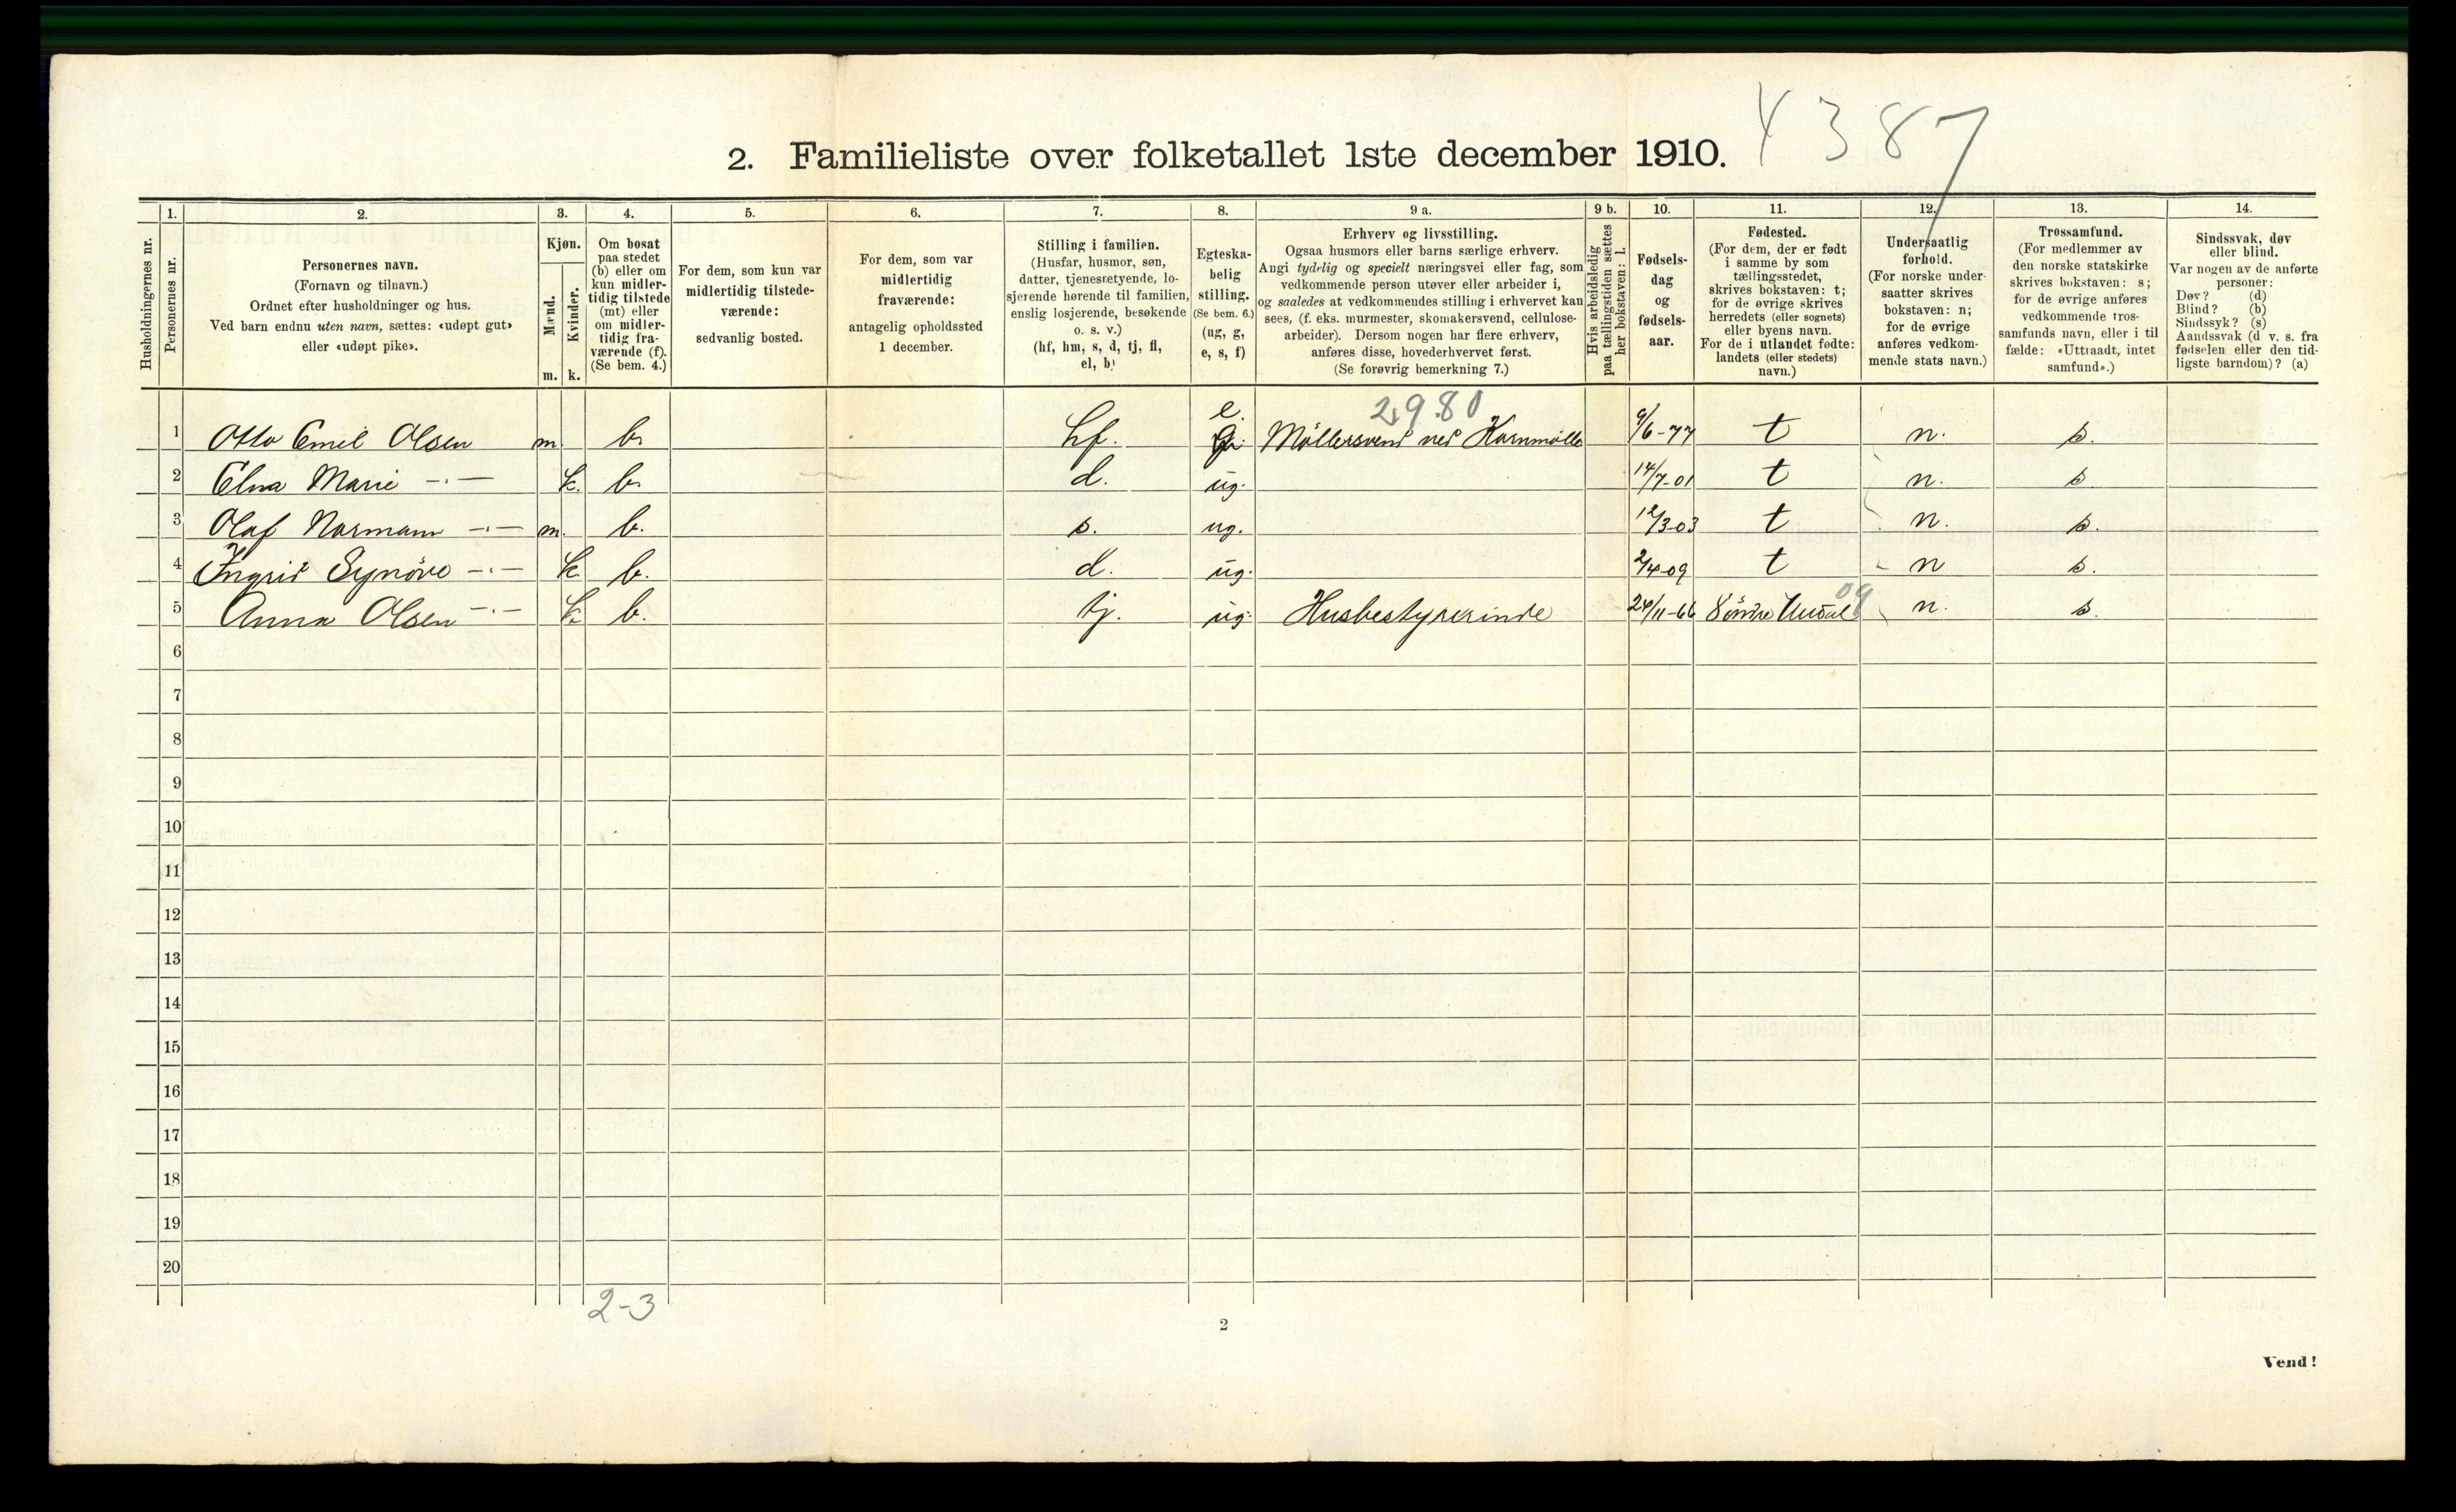 4387
2. Familieliste over folketallet 1ste december 1910.
1. 2. 3. 4. 5. 6. 7. 8. 9 a. 9 b. 10. 11. 12. 13. 14.
Husholdningernes nr.
Personernes nr.
Personernes navn.
(Fornavn og tilnavn.)
Ordnet efter husholdninger og hus.
Ved barn endnu uten navn, sættes: «udøpt gut»
eller «udøpt pike».
Kjøn.
Mænd.
Kvinder.
m. k.
Om bosat
paa stedet
(b) eller om
kun midler-
tidig tilstede
(mt) eller
om midler-
tidig fra-
værende (f).
(Se bem. 4.)
For dem, som kun var
midlertidig tilstede-
værende:
sedvanlig bosted.
For dem, som var
midlertidig
fraværende:
antagelig opholdssted
1 december.
Stilling i familien.
(Husfar, husmor, søn,
datter, tjenestetyende, lo-
sjerende hørende til familien,
enslig losjerende, besøkende
o. s. v.)
(hf, hm, s, d, tj, fl,
el, b)
Egteska-
belig
stilling.
(Se bem. 6.)
(ug, g,
e, s, f)
Erhverv og livsstilling.
Ogsaa husmors eller barns særlige erhverv.
Angi tydelig og specielt næringsvei eller fag, som
vedkommende person utøver eller arbeider i,
og saaledes at vedkommendes stilling i erhvervet kan
sees, (f. eks. murmester, skomakersvend, cellulose-
arbeider). Dersom nogen har flere erhverv,
anføres disse, hovederhvervet først.
(Se forøvrig bemerkning 7.)
Hvis arbeidsledig
paa tællingstiden sættes
her bokstaven: l.
Fødsels-
dag
og
fødsels-
aar.
Fødested.
(For dem, der er født
i samme by som
tællingsstedet,
skrives bokstaven: t;
for de øvrige skrives
herredets (eller sognets)
eller byens navn.
For de i utlandet fødte:
landets (eller stedets)
navn.)
Undersaatlig
forhold.
(For norske under-
saatter skrives
bokstaven: n;
for de øvrige
anføres vedkom-
mende stats navn.)
Trossamfund.
(For medlemmer av
den norske statskirke
skrives bokstaven: s;
for de øvrige anføres
vedkommende tros-
samfunds navn, eller i til
fælde: «Uttraadt, intet
samfund».)
Sindssvak, døv
eller blind.
Var nogen av de anførte
personer:
Døv? (d)
Blind? (b)
Sindssyk? (s)
Aandssvak (d v. s. fra
fødselen eller den tid-
ligste barndom)? (a)
e. 2980
1 Otto Emil Olsen m. b. hf. g. Möllersvend ved Kornmölle 9/6-77 t n. s.
2 Elna Marie -.- k. b. d. ug. 14/7-01 t n. s
3 Olaf Normann -.- m. b. s. ug. 12/3-03 t n. s.
4 Ingrid Synöve -.- k b. d. ug. 2/4-09 t n s.
09
5 Anna Olsen -.- k b. tj. ug. Husbestyrerinde 24/11-66 Söndre Undal n. s.
6
7
8
9
10
11
12
13
14
15
16
17
18
19
20
2-3
2
Vend!